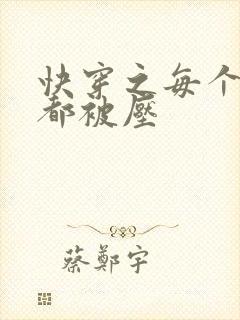 快穿之每个
都被壓
蔡鄭宇